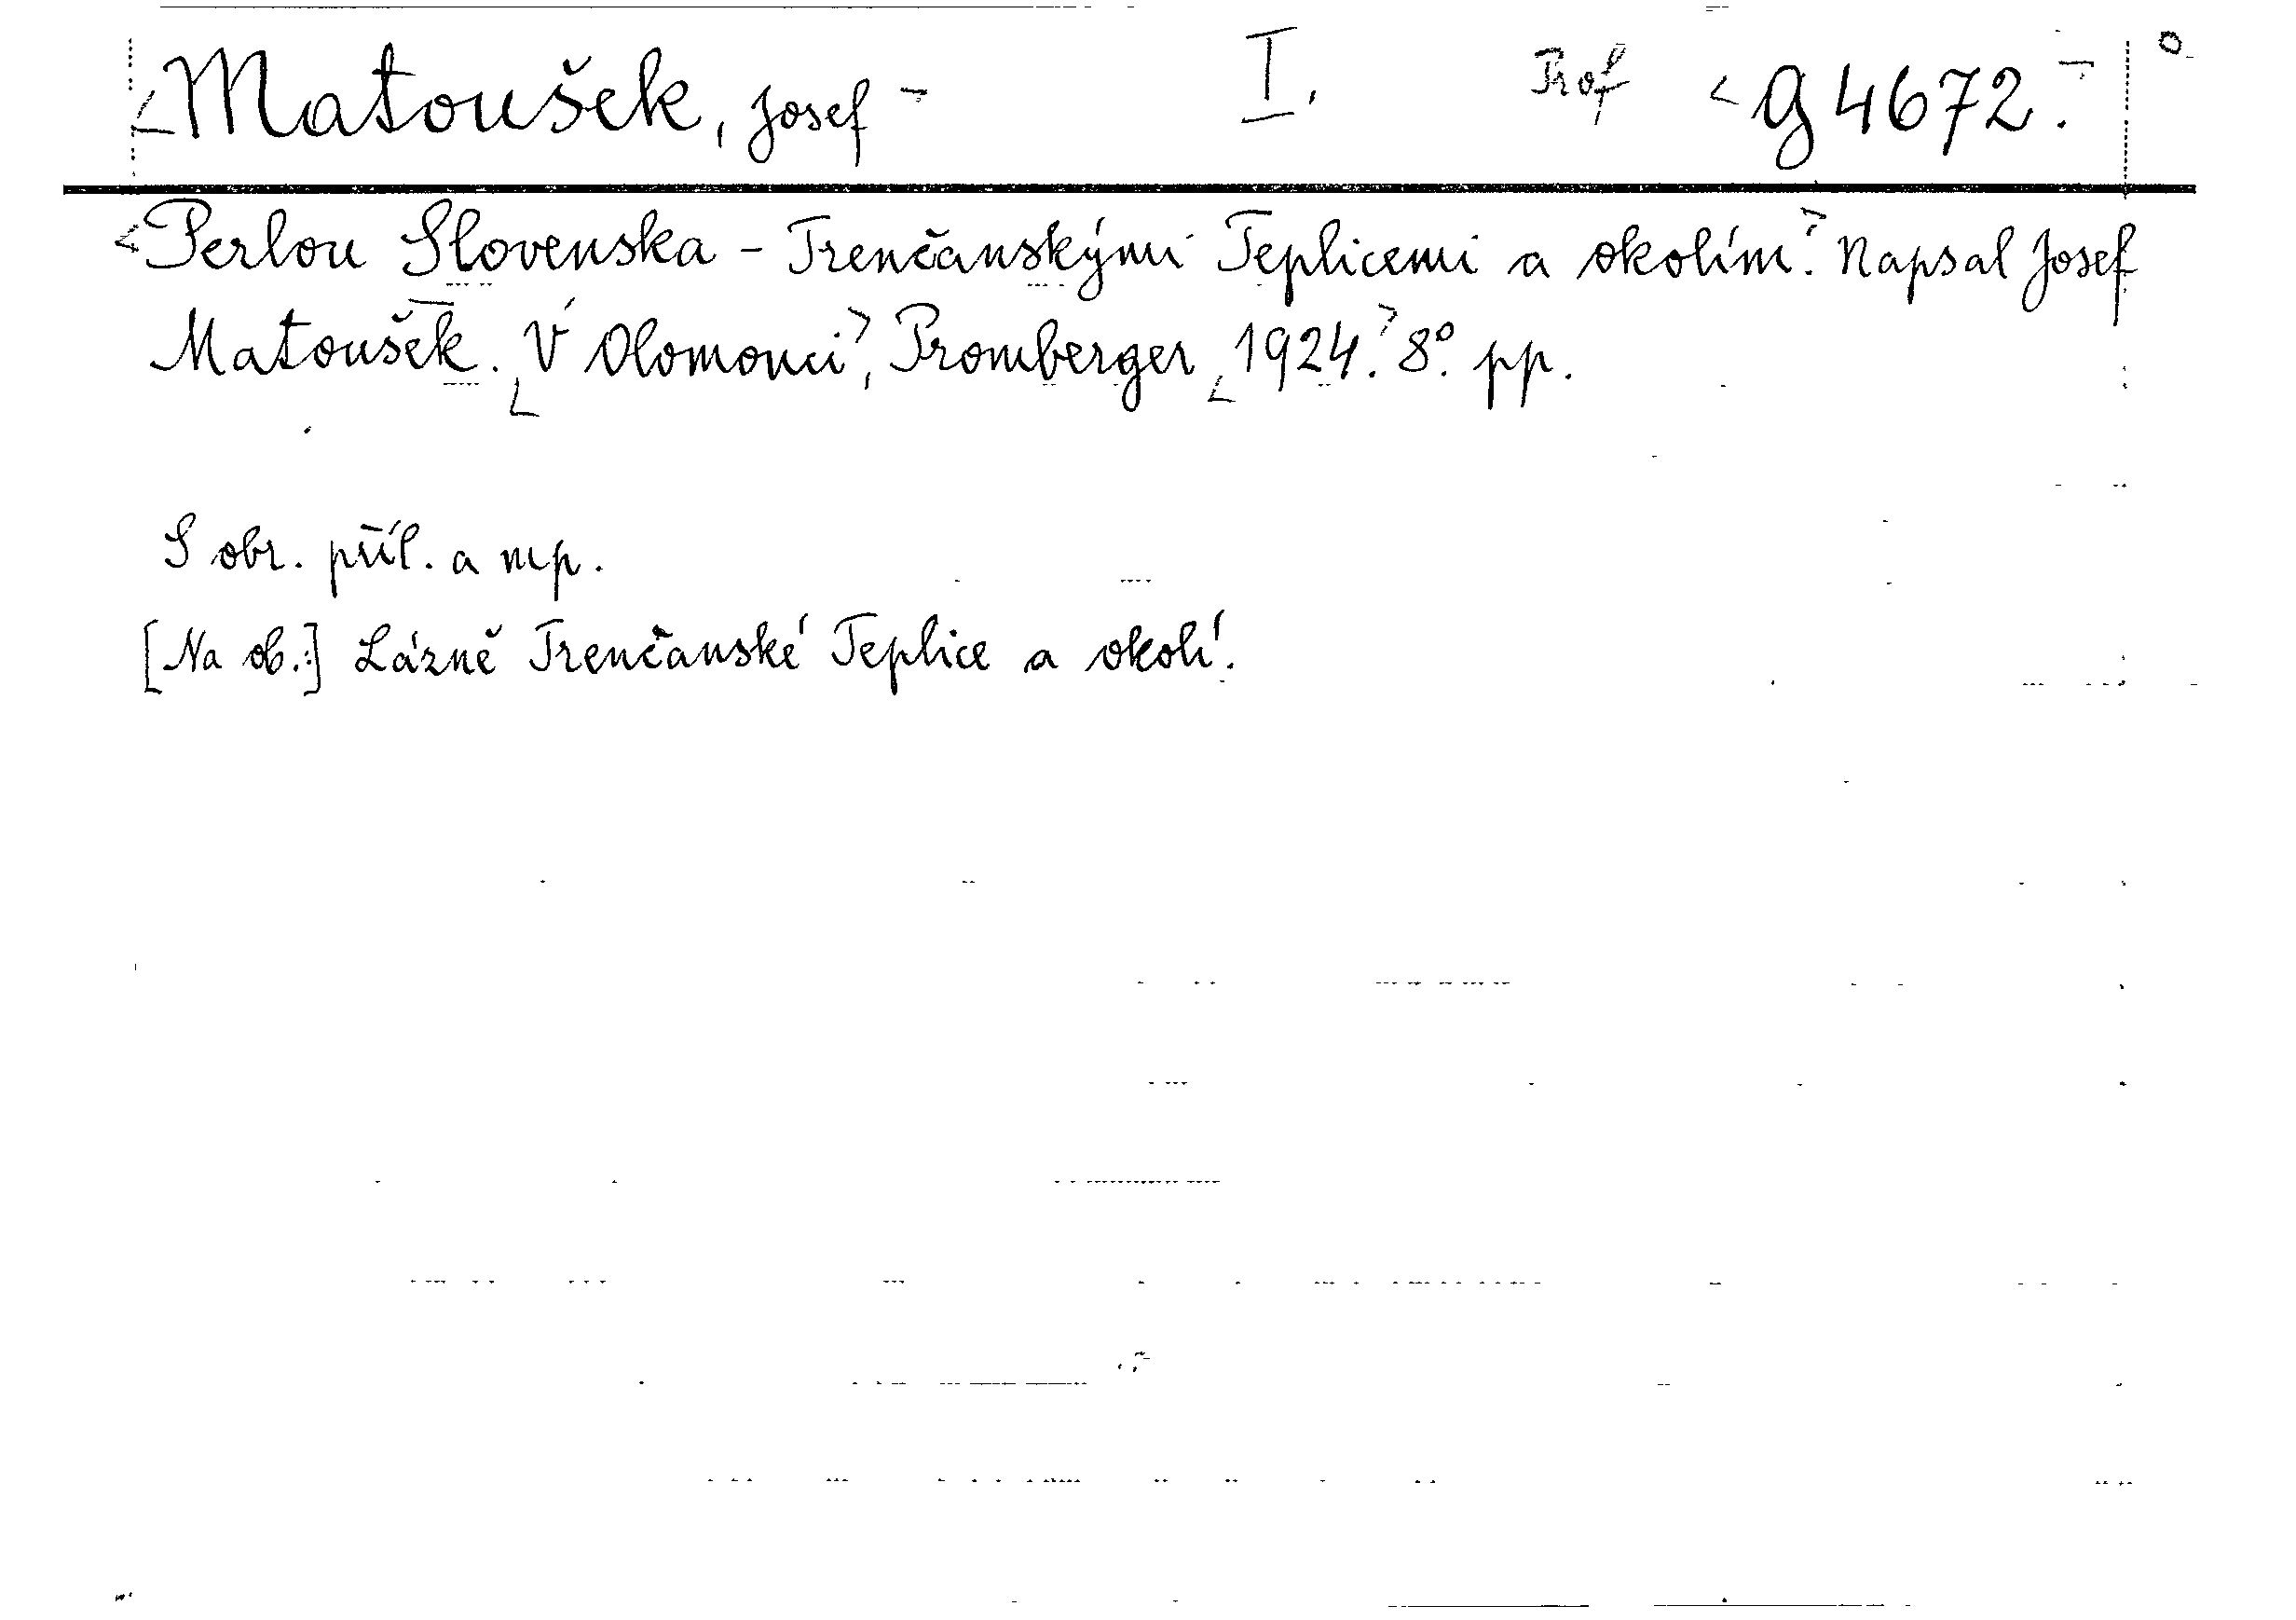 Matoušek, Josef I. Prof g 4672.
Perlou Slovenska - Trenčanskými Teplicemi a okolím. Napsal Josef
Matoušek. V Olomouci, Promberger, 1924. 8°. pp.
S obr. příl. a mp.
[Na ob.:] Lázně Trenčanské Teplice a okolí.